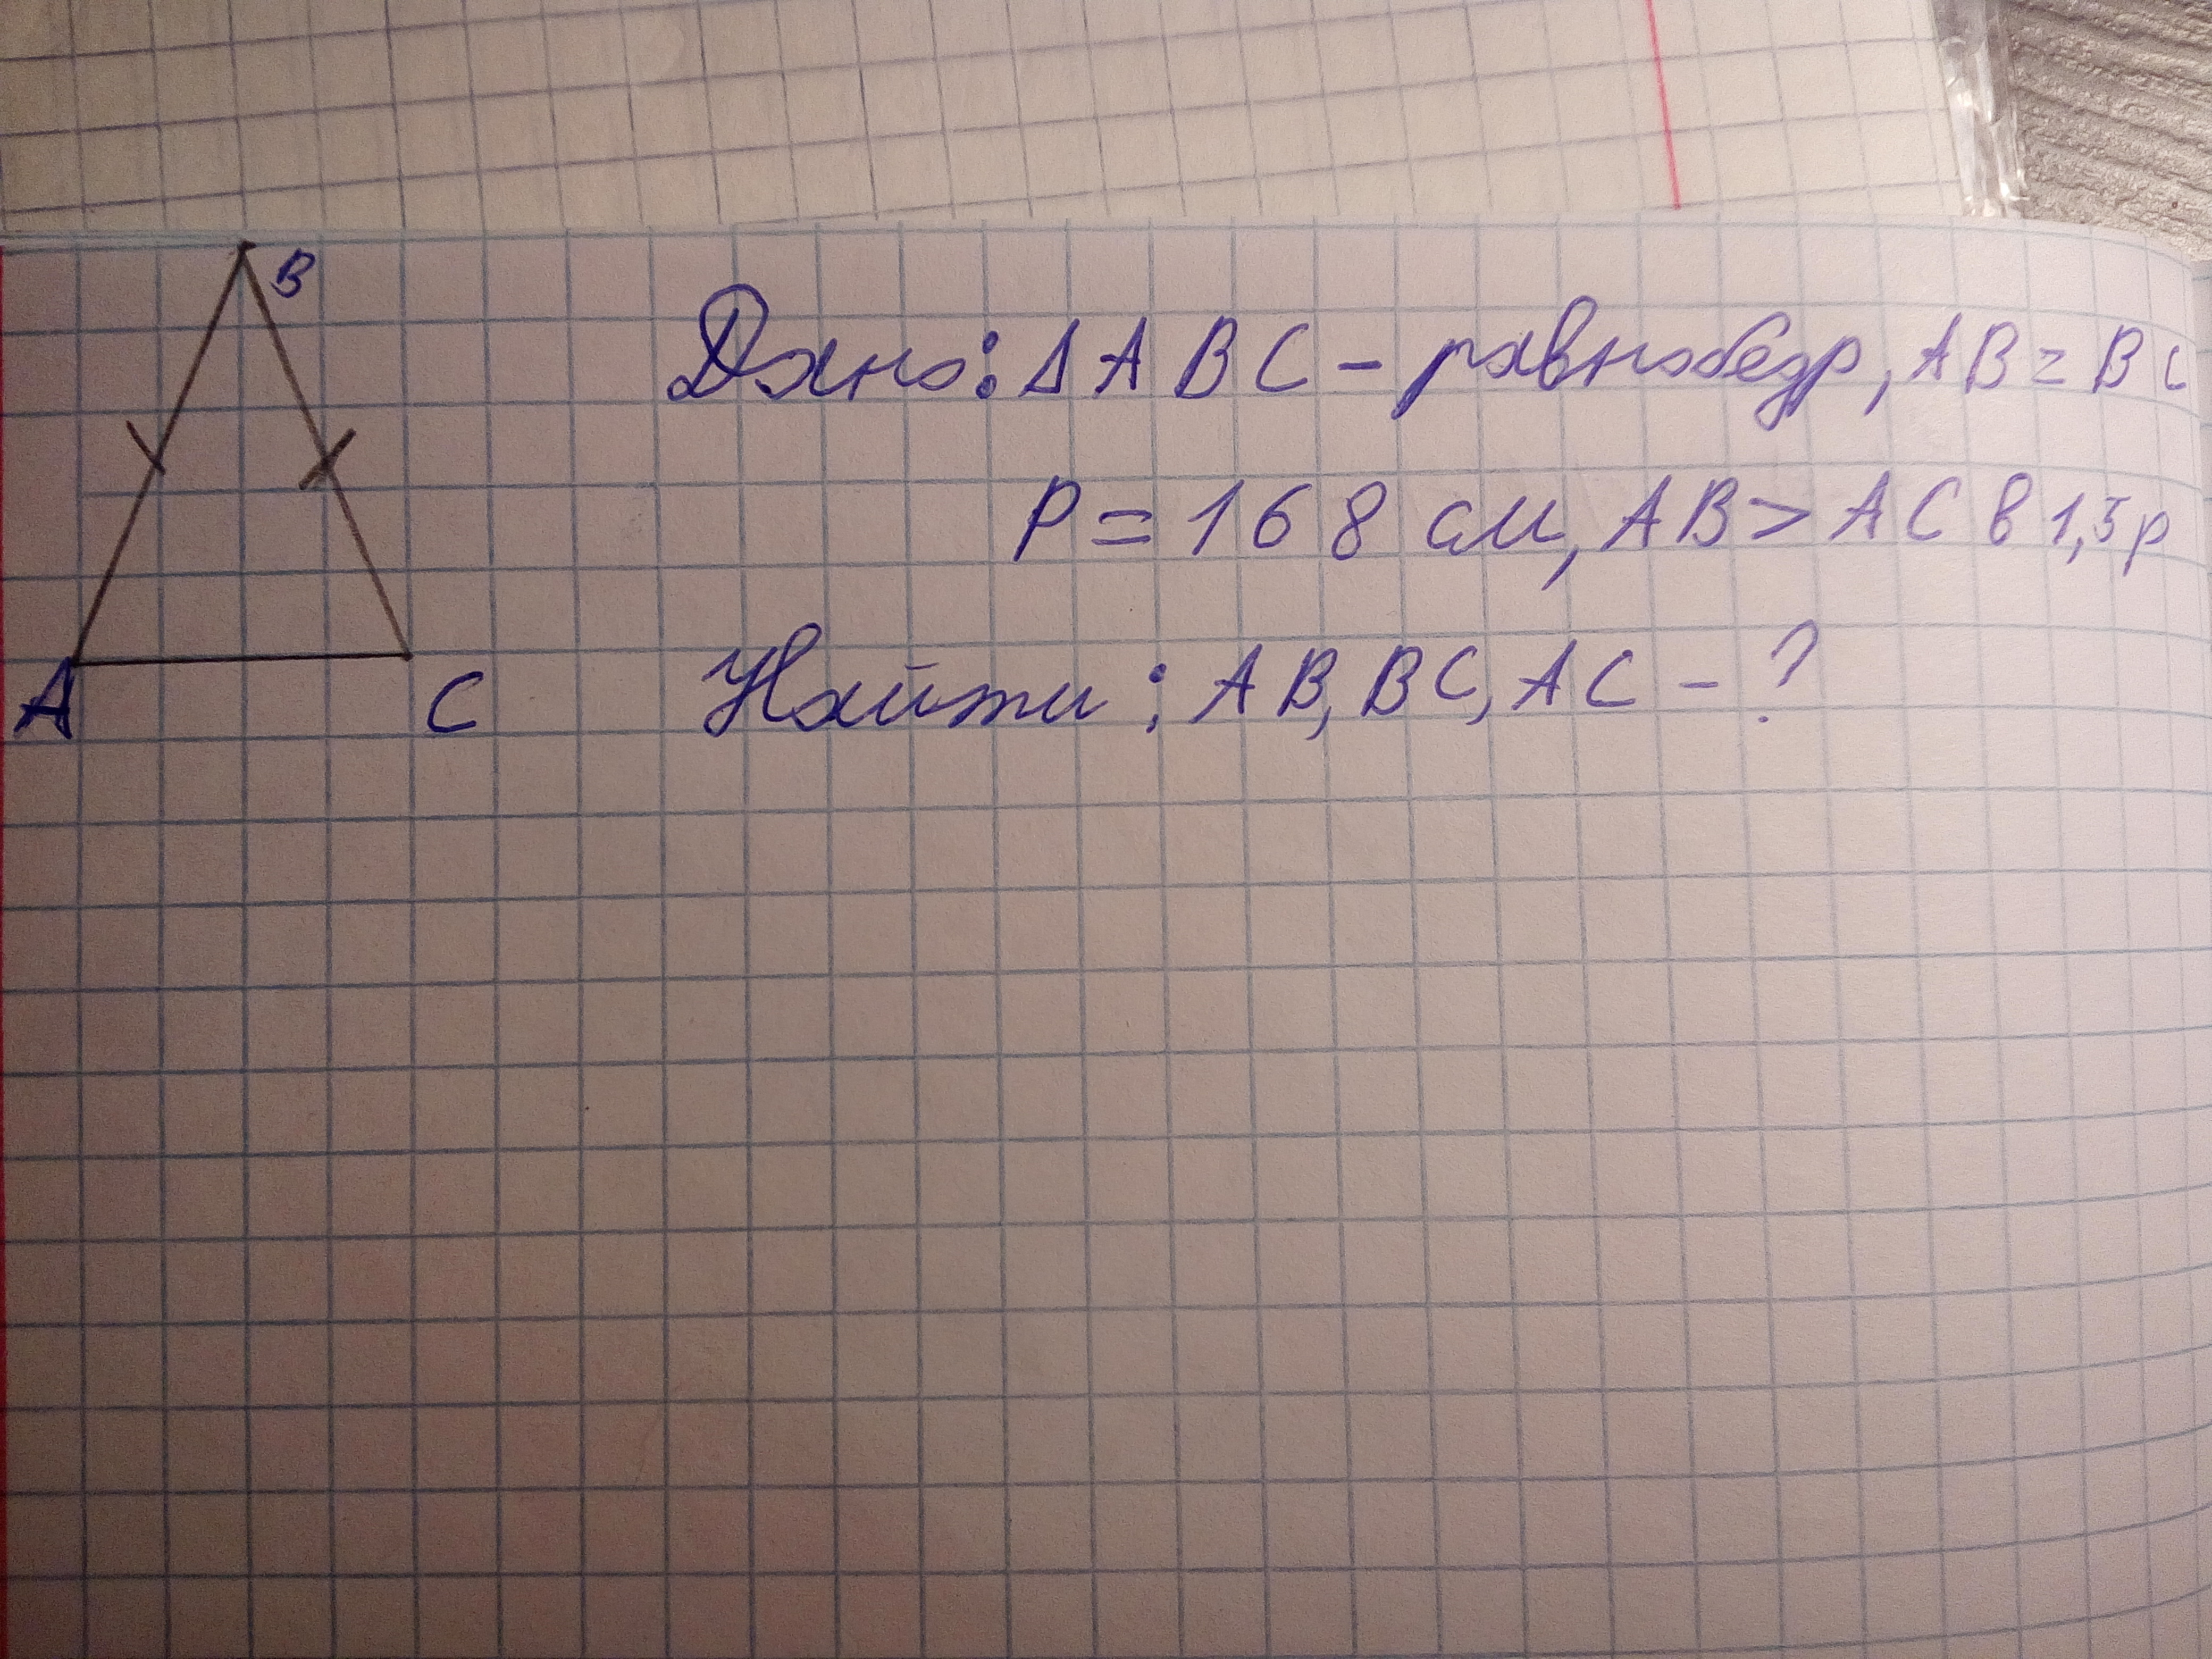 B
Дано: Δ ABC - равнобедр, AB = BC
P = 168 см, AB > AC в 1,5 р
A C
Найти: AB, BC, AC - ?